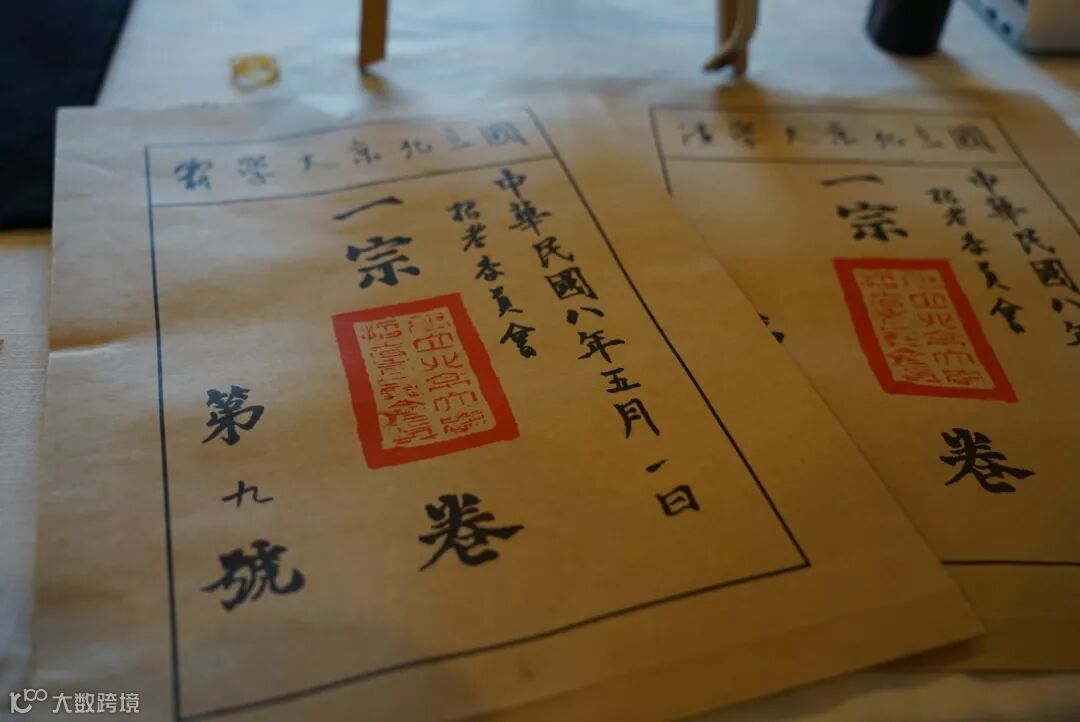 國立北京大學
中華民國八年五月一日
招考委員會
一宗卷
第九號
國立北京大學法
中華民國八年
招考委員會
一宗卷
大数跨境